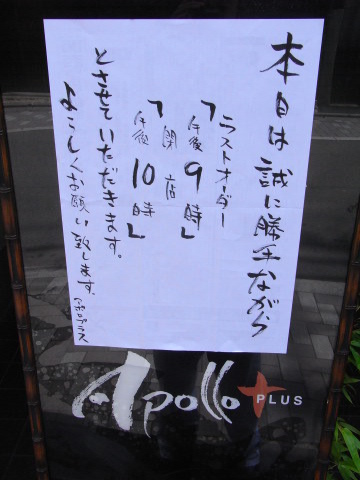 本日は誠に勝手ながら
ラストオーダー
「午後9時」
閉店
「午後10時」
とさせていただきます。
よろしくお願い致します。
Apollo PLUS